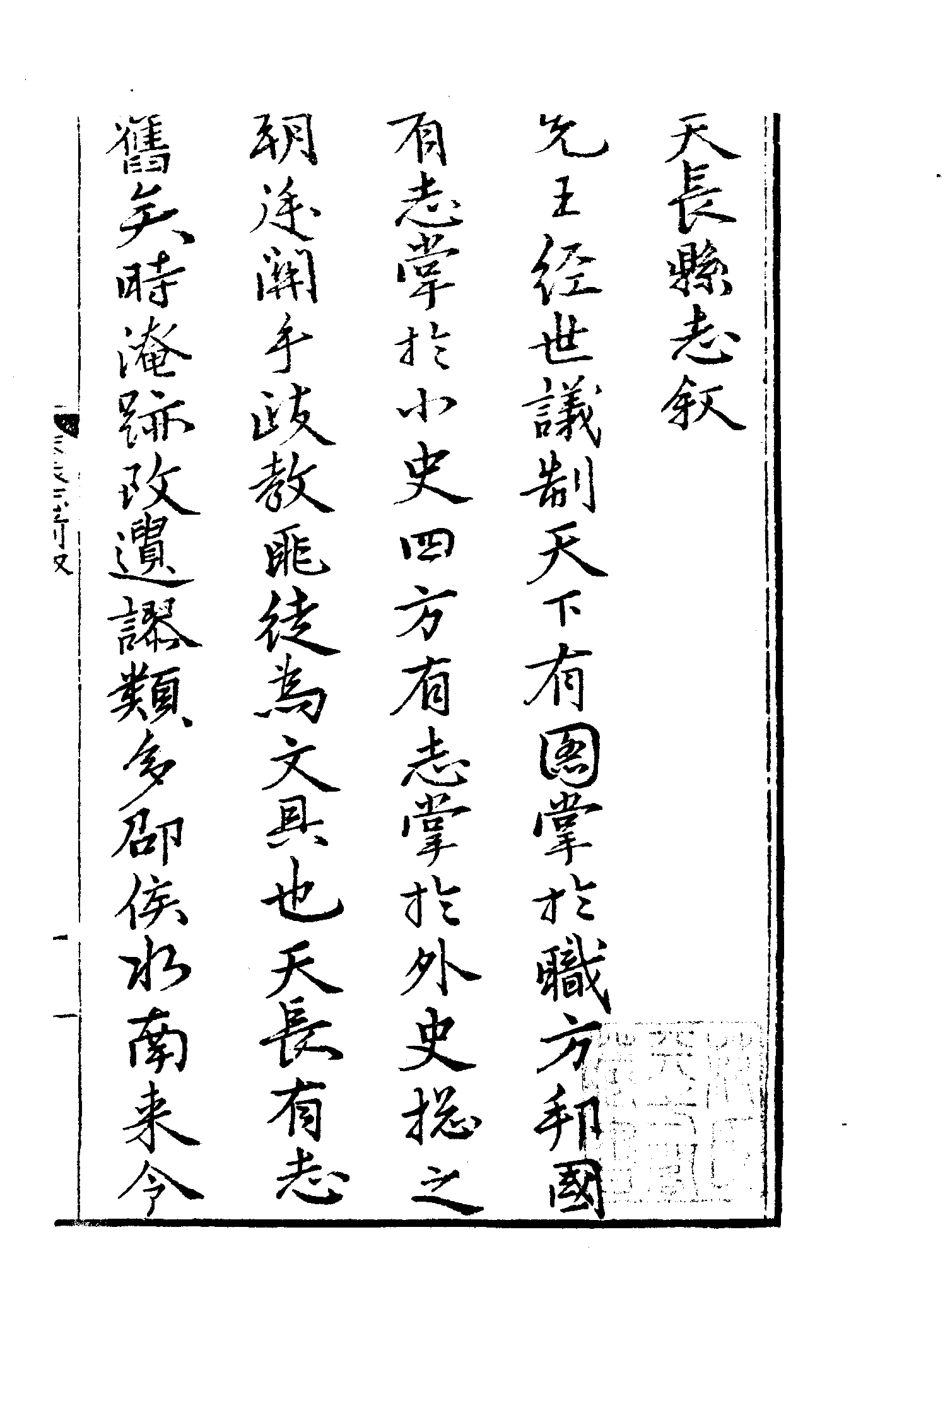 天長縣志叙
先王经世議制天下有圖掌於職方邦國
有志掌於小史四方有志掌於外史揔之
朝廷關乎政教匪徒為文具也天長有志
舊矣時淹跡改遺謬類多邵侯水南来令
天長縣志前叙
一